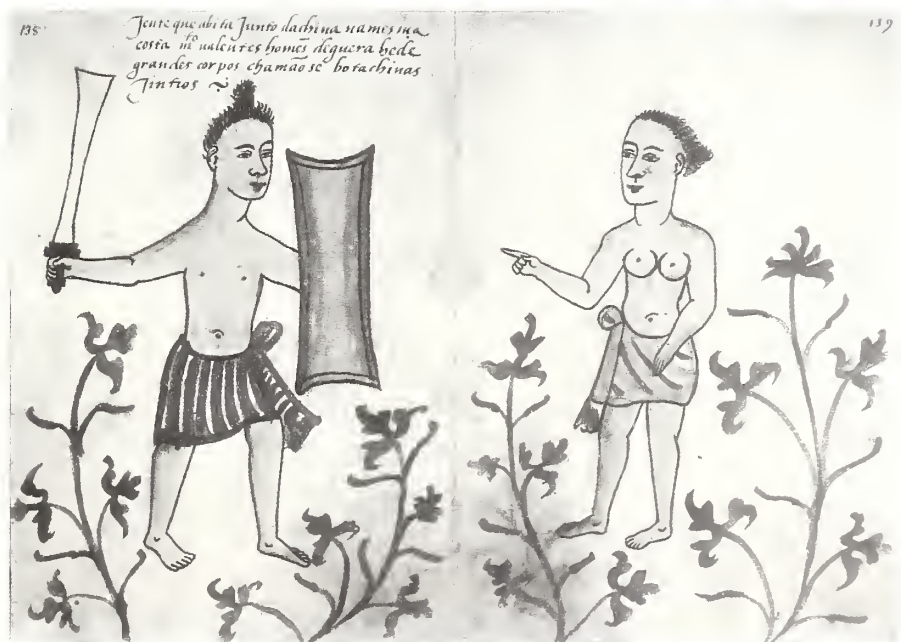 138
Jente que abita Junto dachina namesma
costa m^to ualentes homẽs deguera hede
grandes corpos chamãose botachinas
Jintios ~
139